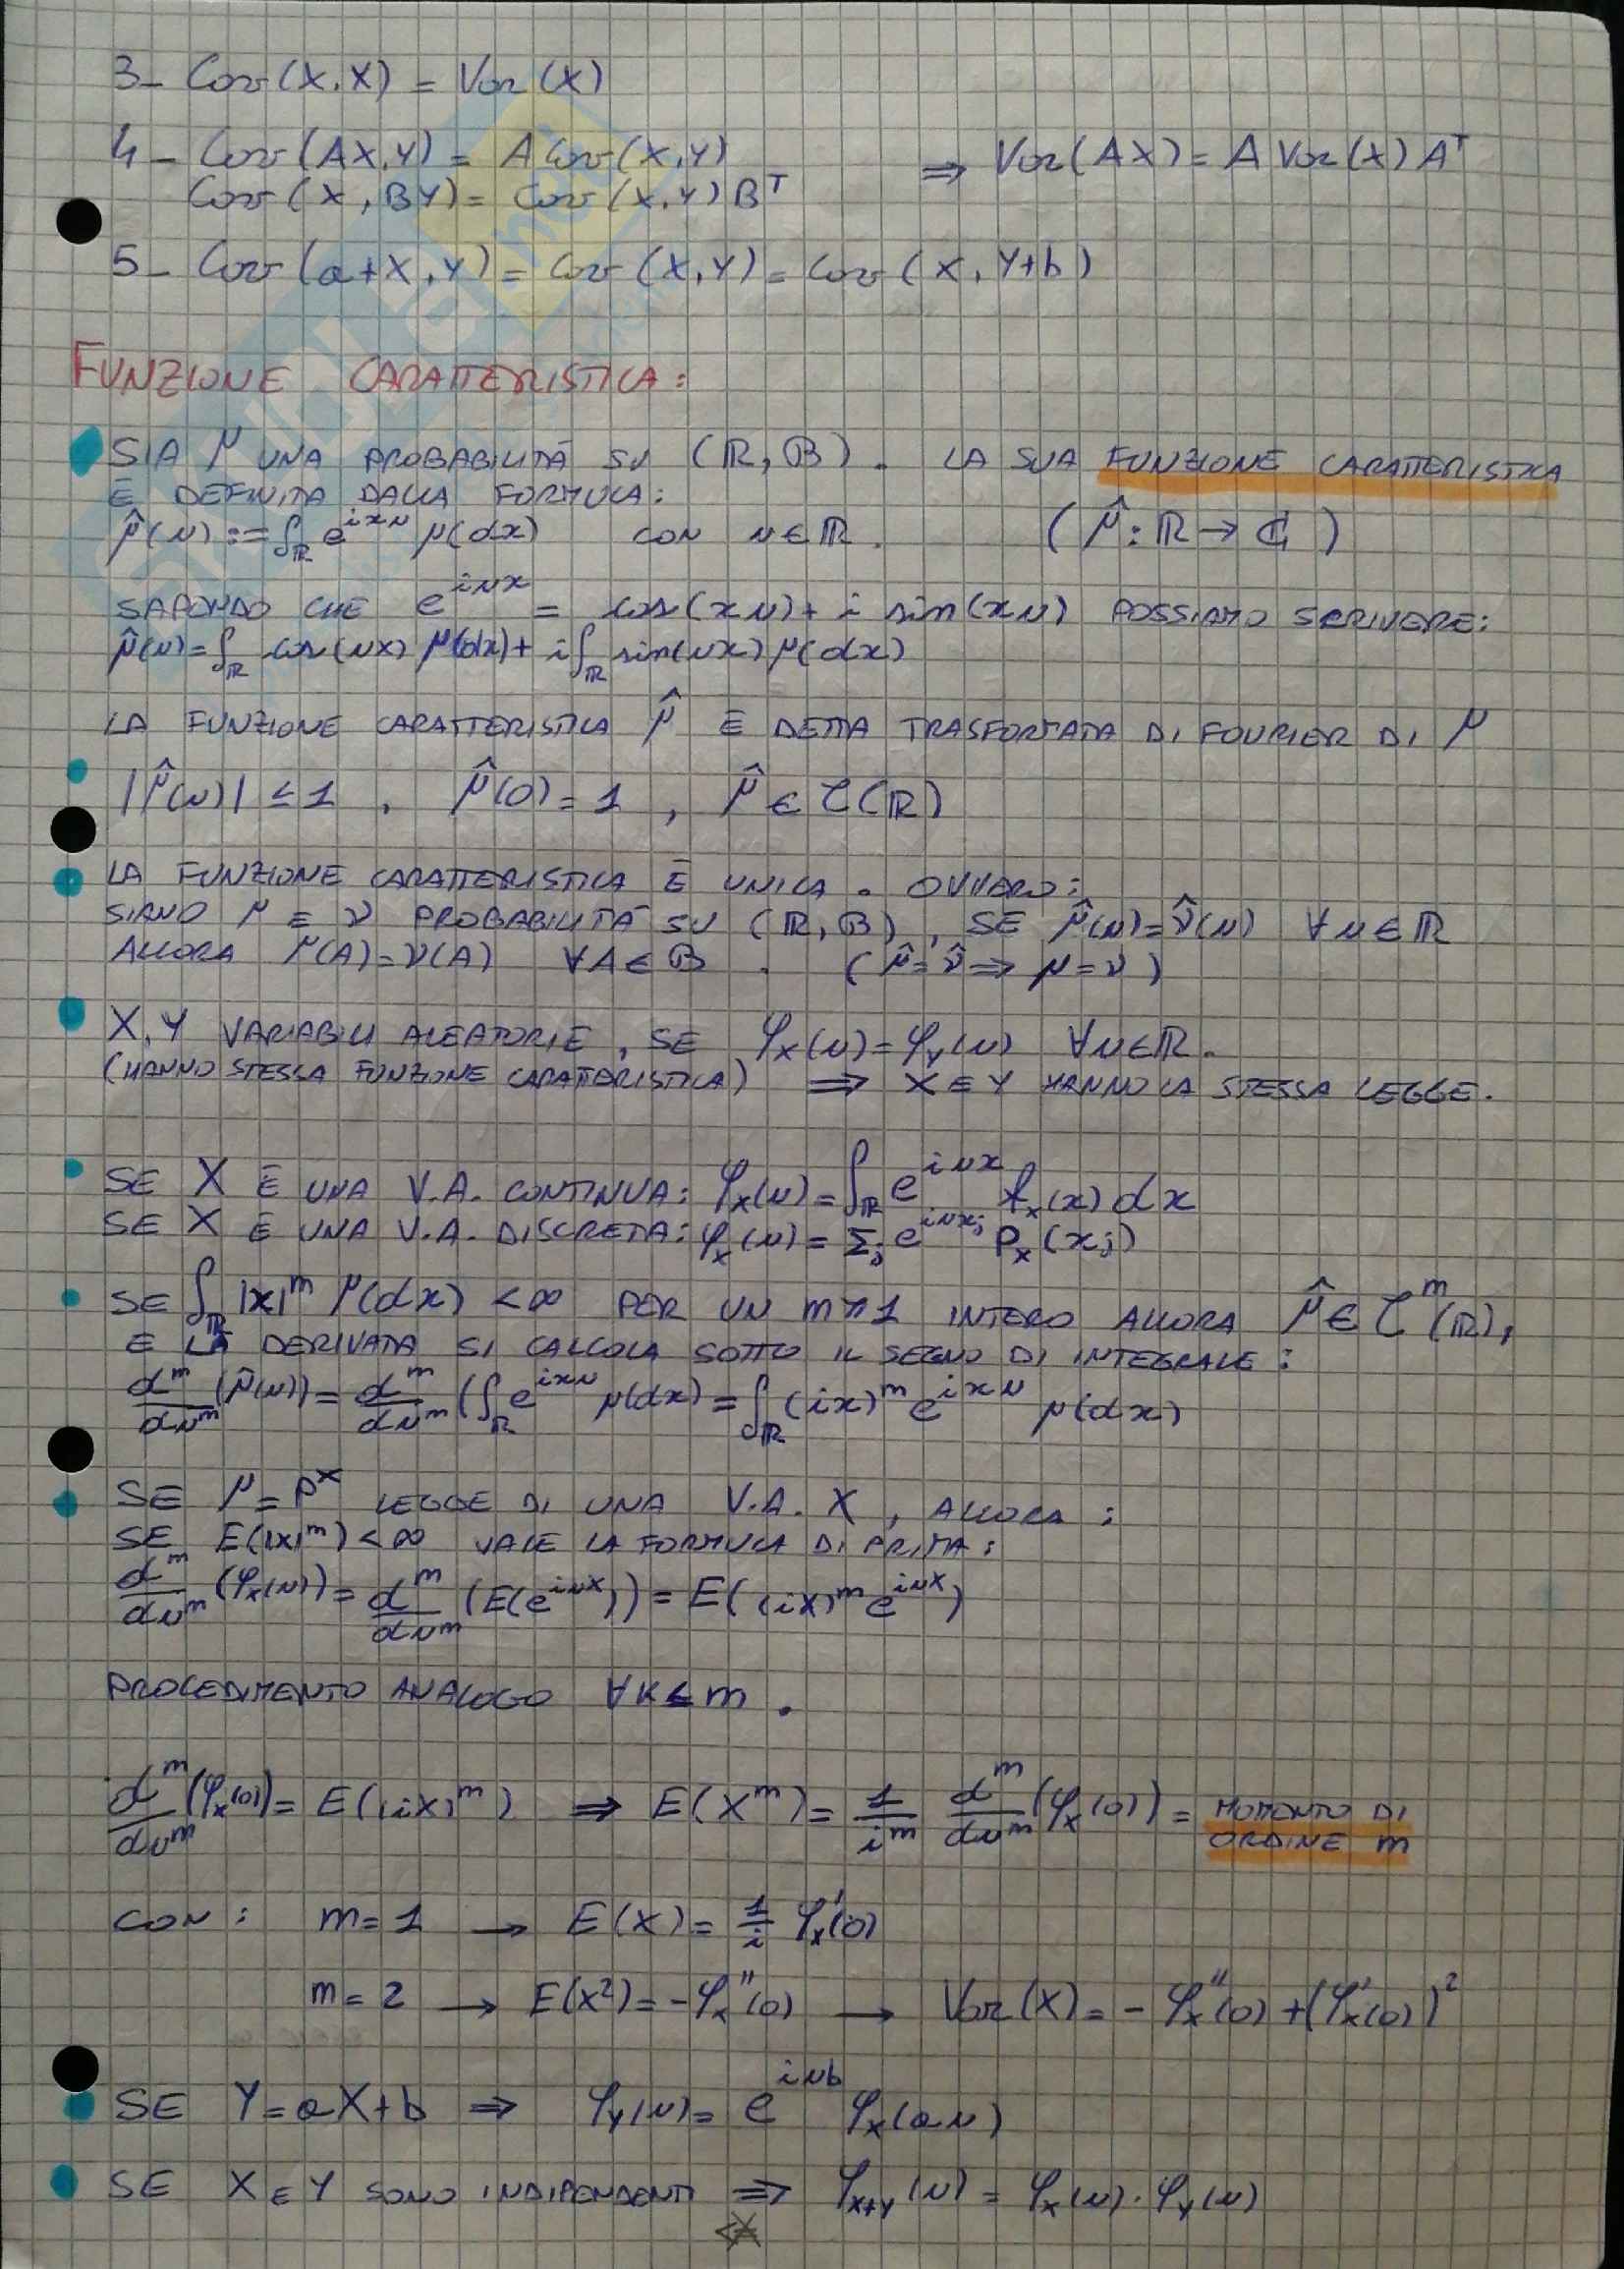 3- Cov(X,X) = Var(X)
4- Cov(AX,Y) = A Cov(X,Y) ⇒ Var(AX) = A Var(X) Aᵀ
Cov(X,BY) = Cov(X,Y) Bᵀ
5- Cov(a+X,Y) = Cov(X,Y) = Cov(X,Y+b)
FUNZIONE CARATTERISTICA:
SIA μ UNA PROBABILITÀ SU (ℝ,𝓑). LA SUA FUNZIONE CARATTERISTICA
È DEFINITA DALLA FORMULA:
μ̂(u) := ∫_ℝ e^{ixu} μ(dx) CON u∈ℝ. (μ̂: ℝ → ℂ)
SAPENDO CHE e^{iux} = cos(xu) + i sin(xu) POSSIAMO SCRIVERE:
μ̂(u) = ∫_ℝ cos(ux) μ(dx) + i∫_ℝ sin(ux) μ(dx)
LA FUNZIONE CARATTERISTICA μ̂ È DETTA TRASFORMATA DI FOURIER DI μ
|μ̂(u)| ≤ 1 , μ̂(0) = 1 , μ̂ ∈ C(ℝ)
LA FUNZIONE CARATTERISTICA È UNICA. OVVERO:
SIANO μ E ν PROBABILITÀ SU (ℝ,𝓑), SE μ̂(u) = ν̂(u) ∀u∈ℝ
ALLORA μ(A) = ν(A) ∀A∈𝓑. (μ̂ = ν̂ ⇒ μ = ν)
X,Y VARIABILI ALEATORIE, SE φ_X(u) = φ_Y(u) ∀u∈ℝ.
(HANNO STESSA FUNZIONE CARATTERISTICA) ⇒ X E Y HANNO LA STESSA LEGGE.
SE X È UNA V.A. CONTINUA: φ_X(u) = ∫_ℝ e^{iux} f_X(x) dx
SE X È UNA V.A. DISCRETA: φ_X(u) = Σ_j e^{iux_j} p_X(x_j)
SE ∫_ℝ |x|^m μ(dx) < ∞ PER UN m ≥ 1 INTERO ALLORA μ̂ ∈ C^m(ℝ),
E LA DERIVATA SI CALCOLA SOTTO IL SEGNO DI INTEGRALE:
d^m/du^m (μ̂(u)) = d^m/du^m (∫_ℝ e^{ixu} μ(dx) = ∫_ℝ (ix)^m e^{ixu} μ(dx)
SE μ = P^X LEGGE DI UNA V.A. X, ALLORA:
SE E(|X|^m) < ∞ VALE LA FORMULA DI PRIMA:
d^m/du^m (φ_X(u)) = d^m/du^m (E(e^{iuX})) = E((iX)^m e^{iuX})
PROCEDIMENTO ANALOGO ∀K≤m.
d^m/du^m (φ_X(0)) = E((iX)^m) ⇒ E(X^m) = 1/i^m d^m/du^m (φ_X(0)) = MOMENTO DI
ORDINE m
CON: m = 1 → E(X) = 1/i φ_X'(0)
m = 2 → E(X²) = -φ_X''(0) → Var(X) = -φ_X''(0) + (φ_X'(0))²
SE Y = aX+b ⇒ φ_Y(u) = e^{iub} φ_X(au)
SE X E Y SONO INDIPENDENTI ⇒ φ_{X+Y}(u) = φ_X(u)·φ_Y(u)